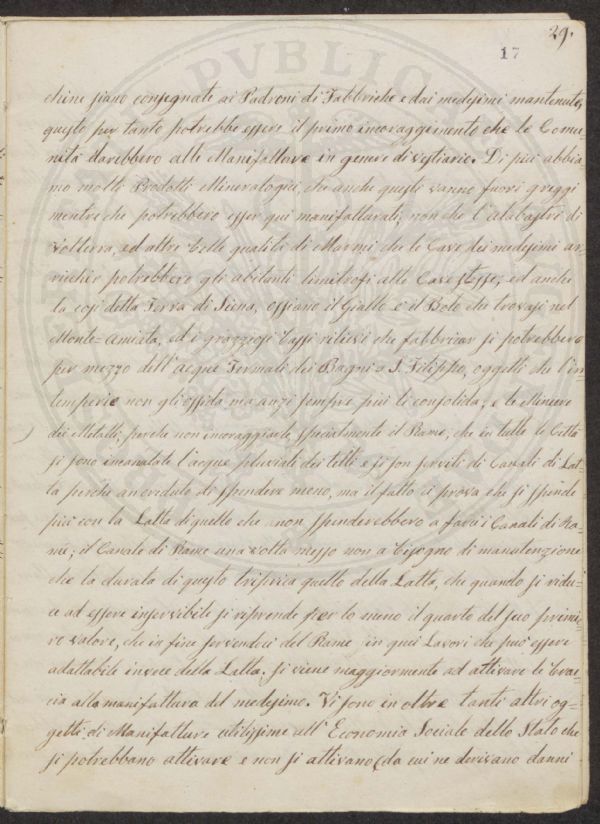 29.
17
chine siano consegnate ai Padroni di Fabbriche e dai medesimi mantenute,
questo per tanto potrebbe essere il primo incoraggimento che le Comu-
nità darebbero alle Manifatture in genere di vestiario. Di più abbia-
mo molti Prodotti Mineralogici, che anche questi vanno fuori greggi
mentre che potrebbero esser qui manifatturati, non che l'alabastri di
Volterra, ed altre belle qualità di Marmi che le Cave dei medesimi ar-
richir potrebbero gli abitanti limitrofi alle Cave stesse, ed anche
la così detta Terra di Siena, ossiano il Giallo e il Bolo che trovasi nel
Monte-Amiata, ed i grazziosi bassi rilievi che fabbricar si potrebbero
per mezzo dell'acque Termali dei Bagni a S. Filippo, oggetti che l'in-
temperie non gli offida ma anzi sempre più le consolida; e le Miniere
dei Metalli, perche non incoraggiarle, specialmente il Rame, che in tutte le Città
si sono incanalate l'acque pluviali dei tetti e si son serviti di Canali di Lat-
ta perche an creduto di spendere meno, ma il fatto ci prova che si spende
più con la Latta di quello che non spenderebbero a farvi i Canali di Ra-
me; il Canale di Rame una volta messo non a bisogno di manutenzione
che la durata di questo triplica quello della Latta, che quando si ridu-
ce ad essere inservibile si riprende per lo meno il quarto del suo primie-
ro valore, che in fine servendoci del Rame in quei Lavori che può essere
adattabile invece della Latta. si viene maggiormente ad attivare le brac-
cia alla manifattura del medesimo. Vi sono in oltre tanti altri og-
getti di Manifatture utilissime all'Economia Sociale dello Stato che
si potrebbano attivare e non si attivano (da cui ne derivano danni